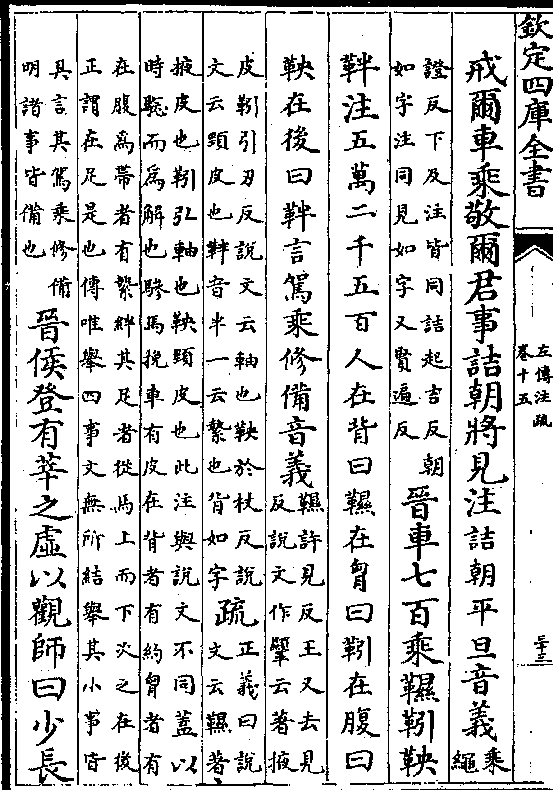 欽定四庫全書
左傳注疏
卷十五
戒爾車乘敬爾君事詰朝將見注詰朝平旦音義乘
繩
證反下及注皆同詰起吉反朝
如字注同見如字又賢遍反
晉車七百乘韅靷鞅
靽注五萬二千五百人在背曰韅在胷曰靷在腹曰
鞅在後曰靽言駕乘修備音義
韅許見反王又去見
反說文作云著掖
皮靷引刃反說文云軸也鞅於杖反說
文云頸皮也靽音半一云縶也背如字
疏
正義曰說
文云韅著
掖皮也靷引軸也鞅頸皮也此注與說文不同蓋以
時驗而為解也驂馬挽車有皮在背者有約胷者有
在腹為帶者有縶絆其足者從馬上而下次之在後
正謂在足是也傳唯舉四事文無所結舉其小事皆
具言其駕乘修備
明諸事皆備也
晉侯登有莘之虛以觀師曰少長